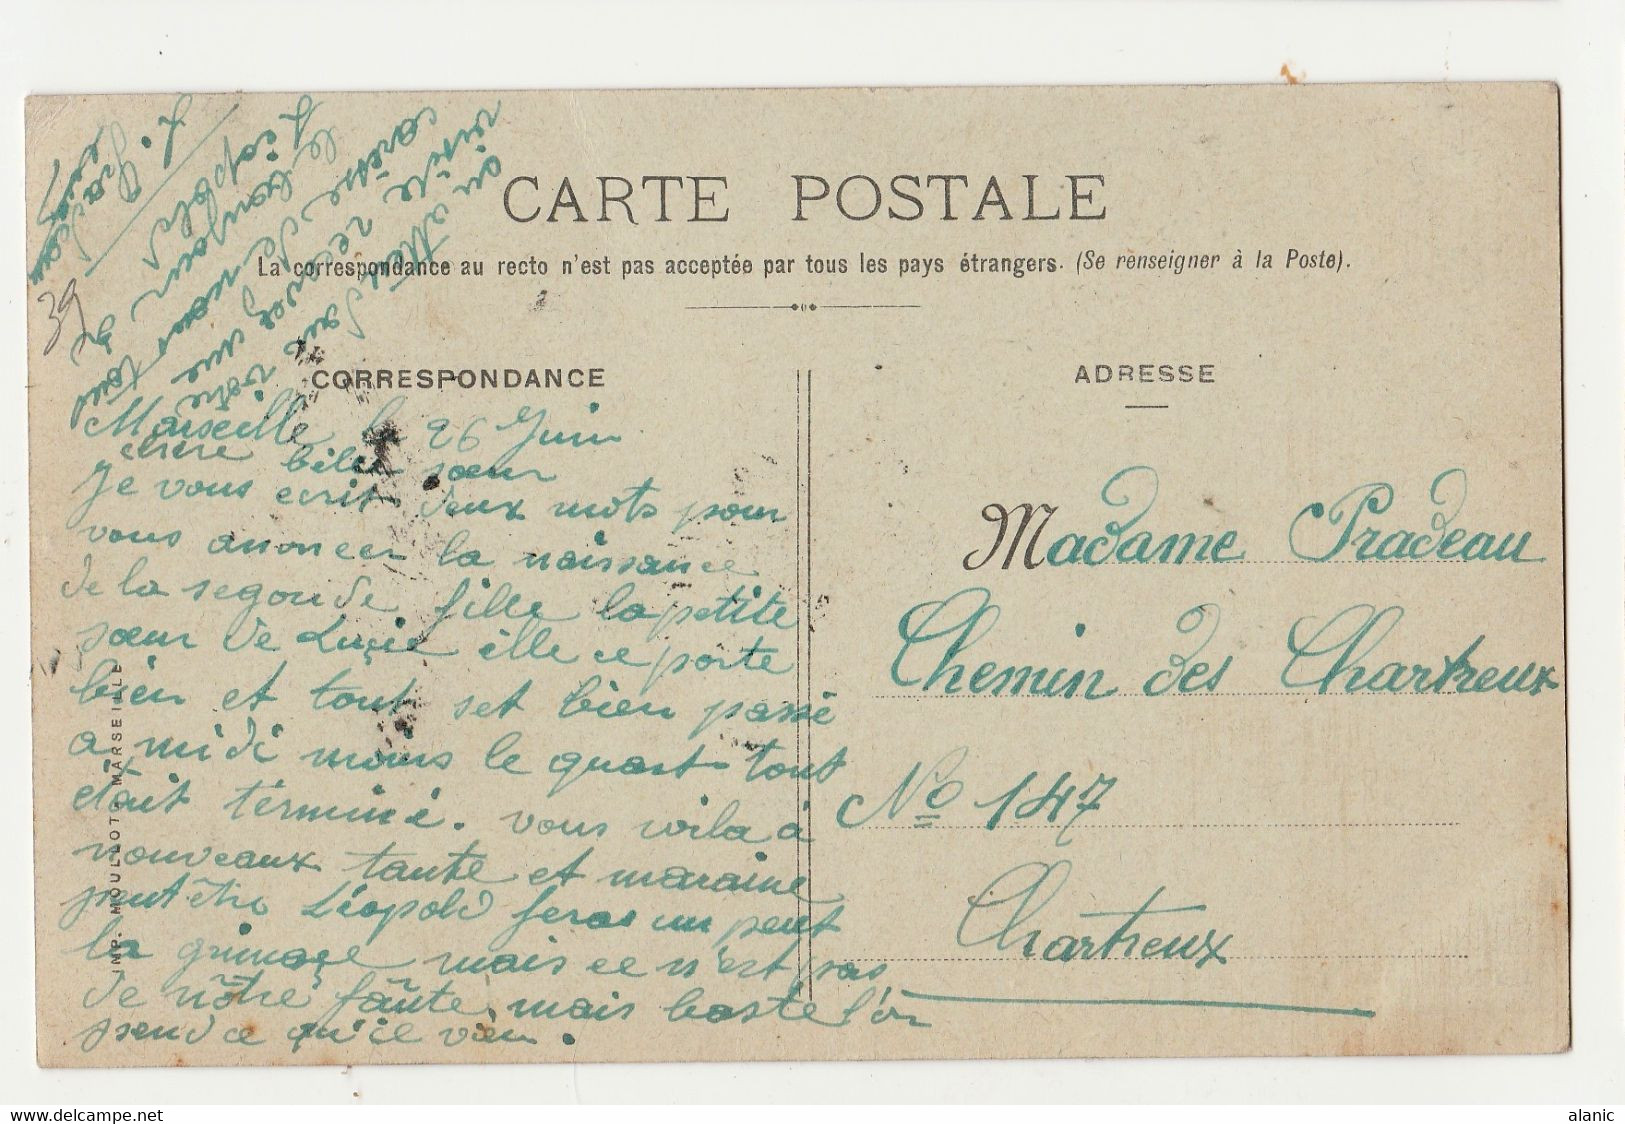 CARTE POSTALE
La correspondance au recto n'est pas acceptée par tous les pays étrangers. (Se renseigner à la Poste).
CORRESPONDANCE
Marseille le 26 Juin
chere bele sœur
Je vous ecrit deux mots pour
vous anoncer la naissance
de la segonde fille la petite
sœur de Lucie elle ce porte
bien et tout set bien passé
a midi moins le quart tout
etait terminé. vous voila à
nouveaux tante et maraine
peut être Léopold feras un peut
la grimace mais ce n'est pas
de nôtre faute mais baste l'on
prend ce qu'il vien.
on attend sur votre
visite recevez une
caresse de nous tous
le bonjour de
Léopold
39
IMP. MOULLOT MARSEILLE
ADRESSE
Madame Pradeau
Chemin des Chartreux
No 147
Chartreux
alanic - delcampe.net